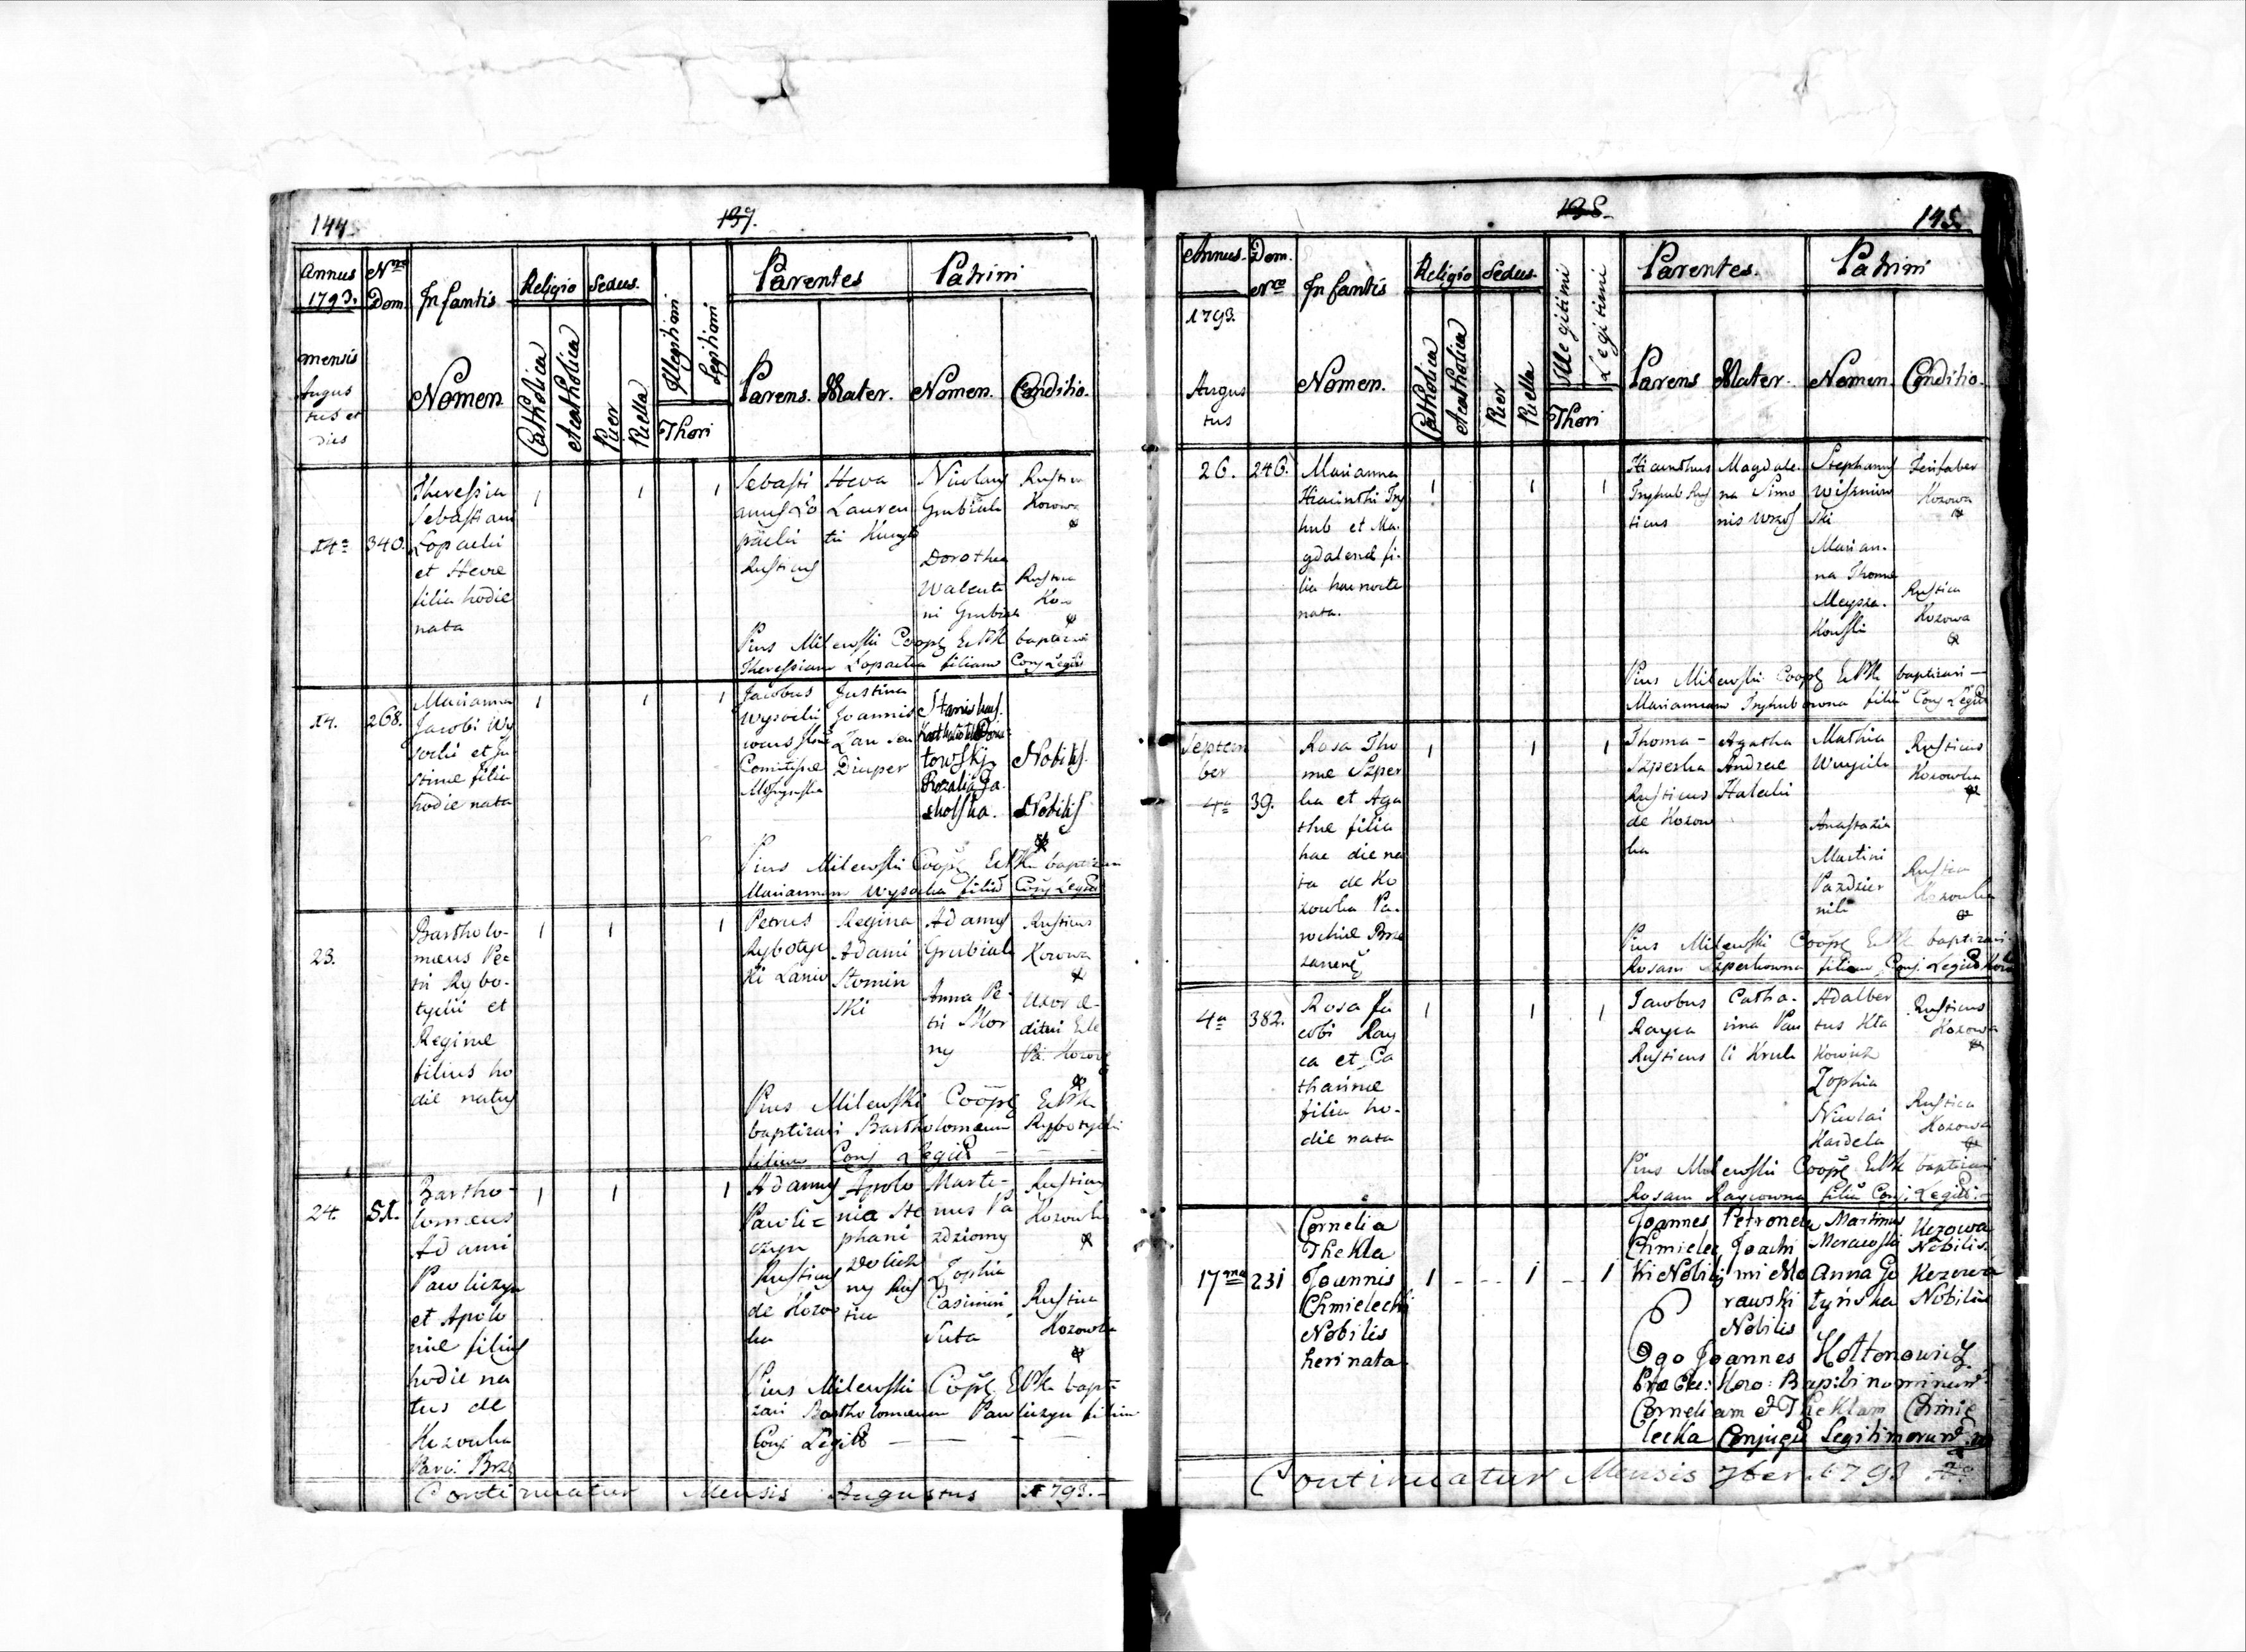 144
137.
Annus
1793.
mensis
Augus
tus et
dies
Nro
Dom.
Infantis
Nomen
Religio
Catholica
Acatholica
Sexus.
Puer
Puella
Illegitimi
Legitimi
Thori
Parentes
Parens.
Mater.
Patrini
Nomen.
Conditio.
14a
340.
Theressia
Sebastiani
Lopacki
et Heve
filia hodie
nata
1
1
1
Sebasti
anus Lo
packi
Rusticus
Heva
Lauren
tii
Nicolaus
Grubiak
Dorothea
Walenti
ni Grubiak
Rusticus
Kozowa
Rustica
Ko
Pius Milewski Coopr EPK baptizavi
Theressiam Lopacka filiam Conj Legit
14.
268.
Marianna
Jacobi Wy
socki et Ju
stinae filia
hodie nata
1
1
1
Jacobus
Wysocki
Comitissae
Justina
Joannis
Stanislaus
towski
Rozalia Za
Nobilis
Nobilis
Pius Milewski Coopr EPK baptizavi
Mariannam Wysocka filia Conj Legit
23.
Bartholo-
maeus Pe-
tri Rybo-
tycki et
Reginae
filius ho
die natus
1
1
1
Petrus
Rybotyc
ki Lanio
Regina
Adami
Stomin
ski
Adamus
Grubiak
Anna Pe-
tri Skor
ny
Rusticus
Kozowa
Uxor
Pius Milewski Coopr EPK
baptizavi Bartholomaeum Rybotycki
filium Conj Legit
24.
51.
Bartho-
lomeus
Adami
Pawliczyn
et Apolo
niae filius
hodie na
tus de
Kozowka
Paro: Brze
1
1
1
Adamus
Pawli=
czyn
Rusticus
de Kozo
ka
Apolo
nia Ste
phani
ny Rus
tica
Marti-
nus Pa
zdziorny
Zophia
Casimiri
Suta
Rusticus
Kozowka
Rustica
Kozowka
Pius Milewski Copr EPK bapti
zavi Bartholomaeum Pawliczyn filium
Conj Legit
Continuatur Mensis Augustus 1793.-
138.
145.
Annus.
1793.
Augus
tus
Dom.
Nro
Infantis
Nomen.
Religio
Catholica
Acatholica
Sexus.
Puer
Puella
Illegitimi
Legitimi
Thori
Parentes.
Parens
Mater.
Patrini
Nomen
Conditio.
26.
246.
Marianna
Hiacinthi Tryh
hub et Ma.
gdalenae fi-
lia hac nocte
nata.
1
1
1
Hiacinthus
Tryhub Rus
ticus
Magdale.
na Simo
nis Wróż
Stephanus
Wiszniow
ski
Marian.
na Thomae
Meysza.
Kowski
Kozowa
Rustica
Kozowa
Pius Milewski Coopr EPK baptizavi -
Mariannam Tryhubowna filia Conj Legit
Septem
ber
4a
39.
Rosa Tho
mae Szper
ka et Aga
thae filia
hac die na
ta de Ko
zowka Pa-
rochiae Brze
zanens
1
1
1
Thoma -
Szperka
Rusticus
de Kozow
ka
Agatha
Andreae
Halecki
Mathia
Anastazia
Martini
Pazdzier
nik
Rusticus
Kozowka
Rustica
Kozowka
Pius Milewski Coopr EPK baptizavi
Rosam Szperkowna filiam Conj. Legit
4a
382.
Rosa Ja
cobi Ray
ca et Ca
tharinae
filia ho-
die nata
1
1
1
Jacobus
Rayca
Rusticus
Catha-
rina Pau
li Kruk
Adalber
tus Kla
kowicz
Zophia
Nicolai
Kardela
Rusticus
Kozowa
Rustica
Kozowa
Pius Milewski Coopr EPK baptizavi
Rosam Raycowna filia Conj. Legit.
17ma
231
Cornelia
Thekla
Joannis
Chmielecki
Nobilis
heri nata
1
1
1
Joannes
Chmielec
ki Nobilis
Petronela
Joachi
mi Mo
rawski
Nobilis
Martinus
Morawski
Anna Go
tyńska
Kozowa
Nobilis.
Kozowa
Nobilis
Ego Joannes Hottonowicz
Corneliam & Theklam Chmie
lecka Conjugu Legitimorum
Continuatur Mensis 7ber 1793